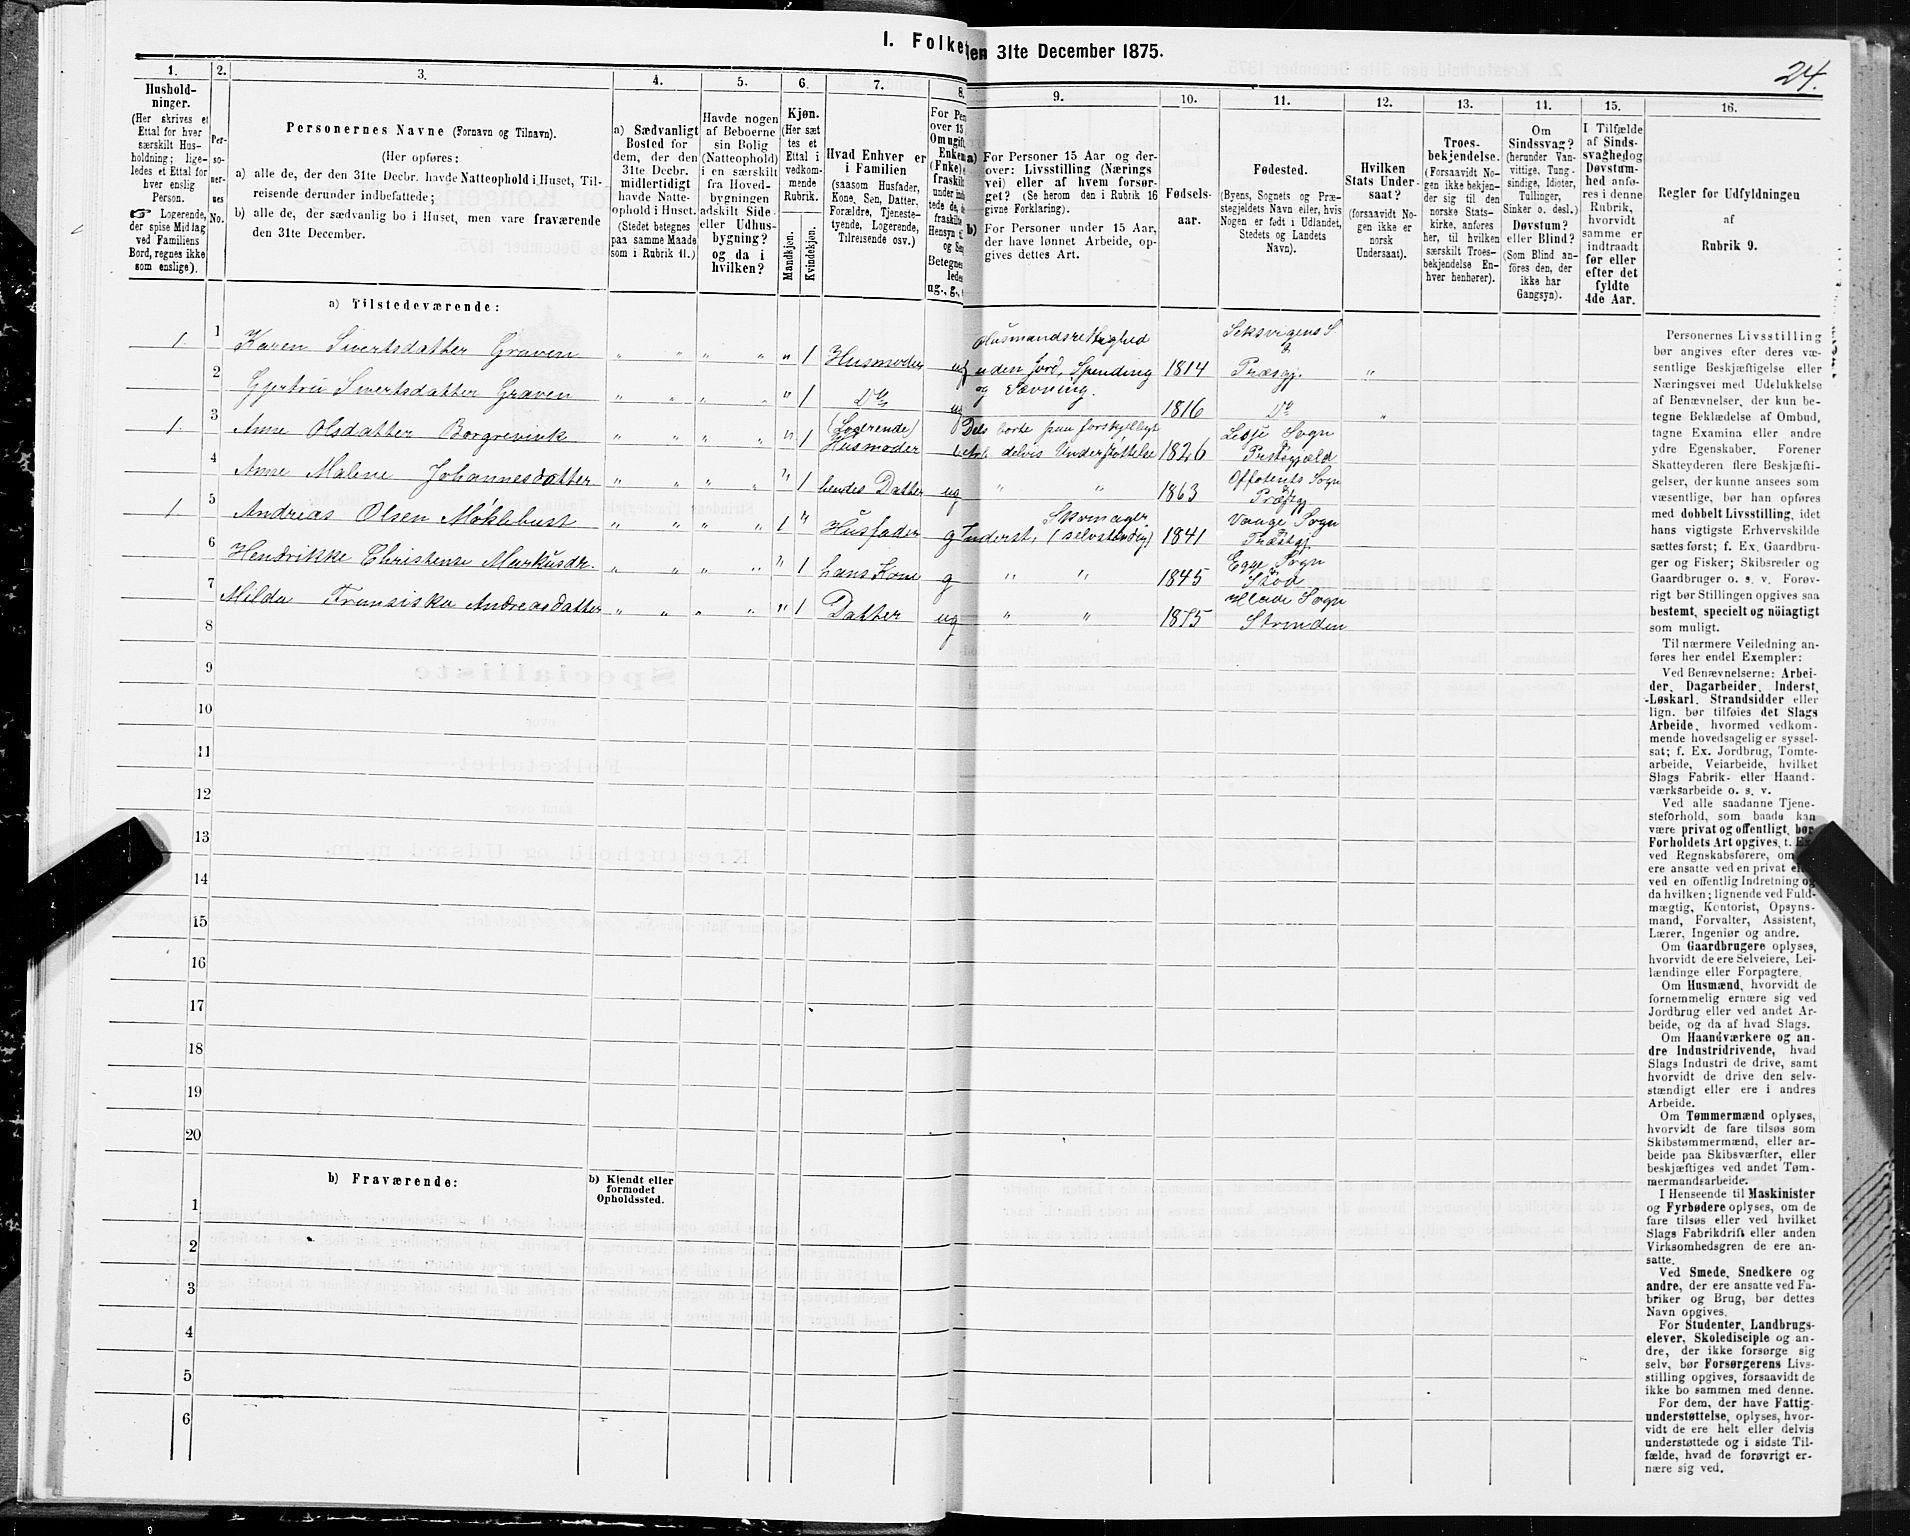 I. Folke
den 31te December 1875.
24.
1.
2.
3.
4.
5.
6.
7.
8.
9.
10.
11.
12.
13.
11.
15.
16.
Hushold-
ninger.
(Her skrives et
Ettal for hver
særskilt Hus-
holdning; lige-
ledes et Ettal for
hver enslig
Person.
☞ Logerende,
der spise Middag
ved Familiens
Bord, regnes ikke
som enslige).
Per-
so-
ner-
nes
No.
Personernes Navne (Fornavn og Tilnavn).
(Her opføres:
a) alle de, der den 31te Decbr. havde Natteophold i Huset, Til-
reisende derunder indbefattede;
b) alle de, der sædvanlig bo i Huset, men vare fraværende
den 31te December.
a) Sædvanligt
Bosted for
dem, der den
31te Decbr.
midlertidigt
havde Natte-
ophold i Huset.
(Stedet betegnes
paa samme Maade
som i Rubrik 11.)
Havde nogen
af Beboerne
sin Bolig
(Natteophold)
i en særskilt
fra Hoved-
bygningen
adskilt Side-
eller Udhus-
bygning?
og da i
hvilken?
Kjøn.
(Her sæt
tes et
Ettal i
vedkom-
mende
Rubrik.
Mandkjøn.
Kvindkjøn.
Hvad Enhver er
i Familien
(saasom Husfader,
Kone, Søn, Datter,
Forældre, Tjeneste-
tyende, Logerende,
Tilreisende osv.)
For Per
over 15
Om ugift
Enke
(Fnke) e
fraskilt
under indb
tede de, d
fraskilte
Hensyn ti
og Sen
Betegnes
ledes
ug., g.,
a) For Personer 15 Aar og der-
over: Livsstilling (Nærings
vei) eller af hvem forsør-
get? (Se herom den i Rubrik 16
givne Forklaring).
b) For Personer under 15 Aar,
der have lønnet Arbeide, op-
gives dettes Art.
Fødsels-
aar.
Fødested.
(Byens, Sognets og Præ-
stegjeldets Navn eller, hvis
Nogen er født i Udlandet,
Stedets og Landets
Navn).
Hvilken
Stats Under-
saat?
(forsaavidt No-
gen ikke er
norsk
Undersaat).
Troes-
bekjendelse.
(Forsaavidt No-
gen ikke bekjen-
der sig til den
norske Stats-
kirke, anføres
her, til hvilken
særskilt Troes-
bekjendelse En-
hver henhører).
Om
Sindssvag?
(herunder Van-
vittige, Tung-
sindige, Idioter,
Tullinger,
Sinker o. desl.)
Døvstum?
eller Blind?
(Som Blind an-
føres den, der
ikke har
Gangsyn).
I Tilfælde
af Sinds-
svaghed og
Døvstum-
hed anfø-
res i denne
Rubrik,
hvorvidt
samme er
indtraadt
før eller
efter det
fyldte
4de Aar.
Regler for Udfyldningen
af
Rubrik 9.
a) Tilstedeværende:
1 1 Karen Sivertsdatter Graven " " " " " 1 Husmoder ug Husmandsrettighed uden Jord, Spinding og Vævning. 1814 Seksvigens S & Præsgj. "
2 Gjertru Sivertsdatter Graven " " " " " 1 Do ug 1816 Do "
1 3 Anne Olsdatter Borgrevink " " " " " 1 (Logerende) Husmoder Dels borte paa forskjelligt Arb. delvis Understøttelse 1826 Lesje Sogn Prstegjæld
4 Ane Malene Johannesdatter " " " " " 1 hendes Datter ug " " 1863 Offotents Sogn & Præstgj
1 5 Andreas Olsen Møklebust " " " " 1 " Husfader g Inderst, Skomager (selvstændig) 1841 Vaage Sogn Præstgj
6 Hendrikke Christense Markusdr. " " " " " 1 hans Kone g " " 1845 Egge Sogn & Stod
7 Milda Fransiska Andreasdatter " " " " " 1 Datter ug " " 1875 Hlade Sogn Strinden
8
9
10
11
12
13
14
15
16
17
18
19
20
b) Fraværende:
b) Kjendt eller
formodet
Opholdssted.
1
2
3
4
5
6
Personernes Livsstilling
bør angives efter deres væ-
sentlige Beskjæftigelse eller
Næringsvei med Udelukkelse
af Benævnelser, der kun be-
tegne Beklædelse af Ombud,
tagne Examina eller andre
ydre Egenskaber. Forener
Skatteyderen flere Beskjæfti-
gelser, der kunne ansees som
væsentlige, bør han opføres
med dobbelt Livsstilling, idet
hans vigtigste Erhvervskilde
sættes først; f. Ex. Gaardbru-
ger og Fisker; Skibsreder og
Gaardbruger o. s. v. Forøv-
rigt bør Stillingen opgives saa
bestemt, specielt og nöiagtigt
som muligt.
Til nærmere Veiledning an-
føres her endel Exempler:
Ved Benævnelserne: Arbei-
der, Dagarbeider, Inderst,
Løskarl, Strandsidder eller
lign. bør tilføies det Slags
Arbeide, hvormed vedkom-
mende hovedsagelig er syssel-
sat; f. Ex. Jordbrug, Tomte-
arbeide, Veiarbeide, hvilket
Slags Fabrik- eller Haand-
værksarbeide o. s. v.
Ved alle saadanne Tjene-
steforhold, som baade kan
være privat og offentligt, bør
Forholdets Art opgives, t. Ex.
ved Regnskabsførere, om
ere ansatte ved en privat el
ved en offentlig Indretning og
da hvilken; lignende ved Fuld-
mægtig, Kontorist, Opsyns-
mand, Forvalter, Assistent,
Lærer, Ingeniør og andre.
Om Gaardbrugere oplyses,
hvorvidt de ere Selveiere, Lei-
lændinge eller Forpagtere.
Om Husmænd, hvorvidt de
fornemmelig ernære sig ved
Jordbrug eller ved andet Ar-
beide, og da af hvad Slags.
Om Haandværkere og an-
dre Industridrivende, hvad
Slags Industri de drive, samt
hvorvidt de drive den selv-
stændigt eller ere i andres
Arbeide.
Om Tømmermænd oplyses,
hvorvidt de fare tilsøs som
Skibstømmermænd, eller ar-
beide paa Skibsværfter, eller
beskjæftiges ved andet Tøm-
mermandsarbeide.
I Henseende til Maskinister
og Fyrbødere oplyses, om de
fare tilsøs eller ved hvilket
Slags Fabrikdrift eller anden
Virksomhedsgren de ere an-
satte.
Ved Smede, Snedkere og
andre, der ere ansatte ved Fa-
briker og Brug, bør dettes
Navn opgives.
For Studenter, Landbrugs-
elever, Skoledisciple og an-
dre, der ikke forsørge sig
selv, bør Forsørgerens Livs-
stilling opgives, forsaavidt de
ikke bo sammen med denne.
For dem, der have Fattig-
understøttelse, oplyses, hvor-
vidt de ere helt eller delvis
understøttede og i sidste Til-
fælde, hvad de forøvrigt er-
nære sig ved.